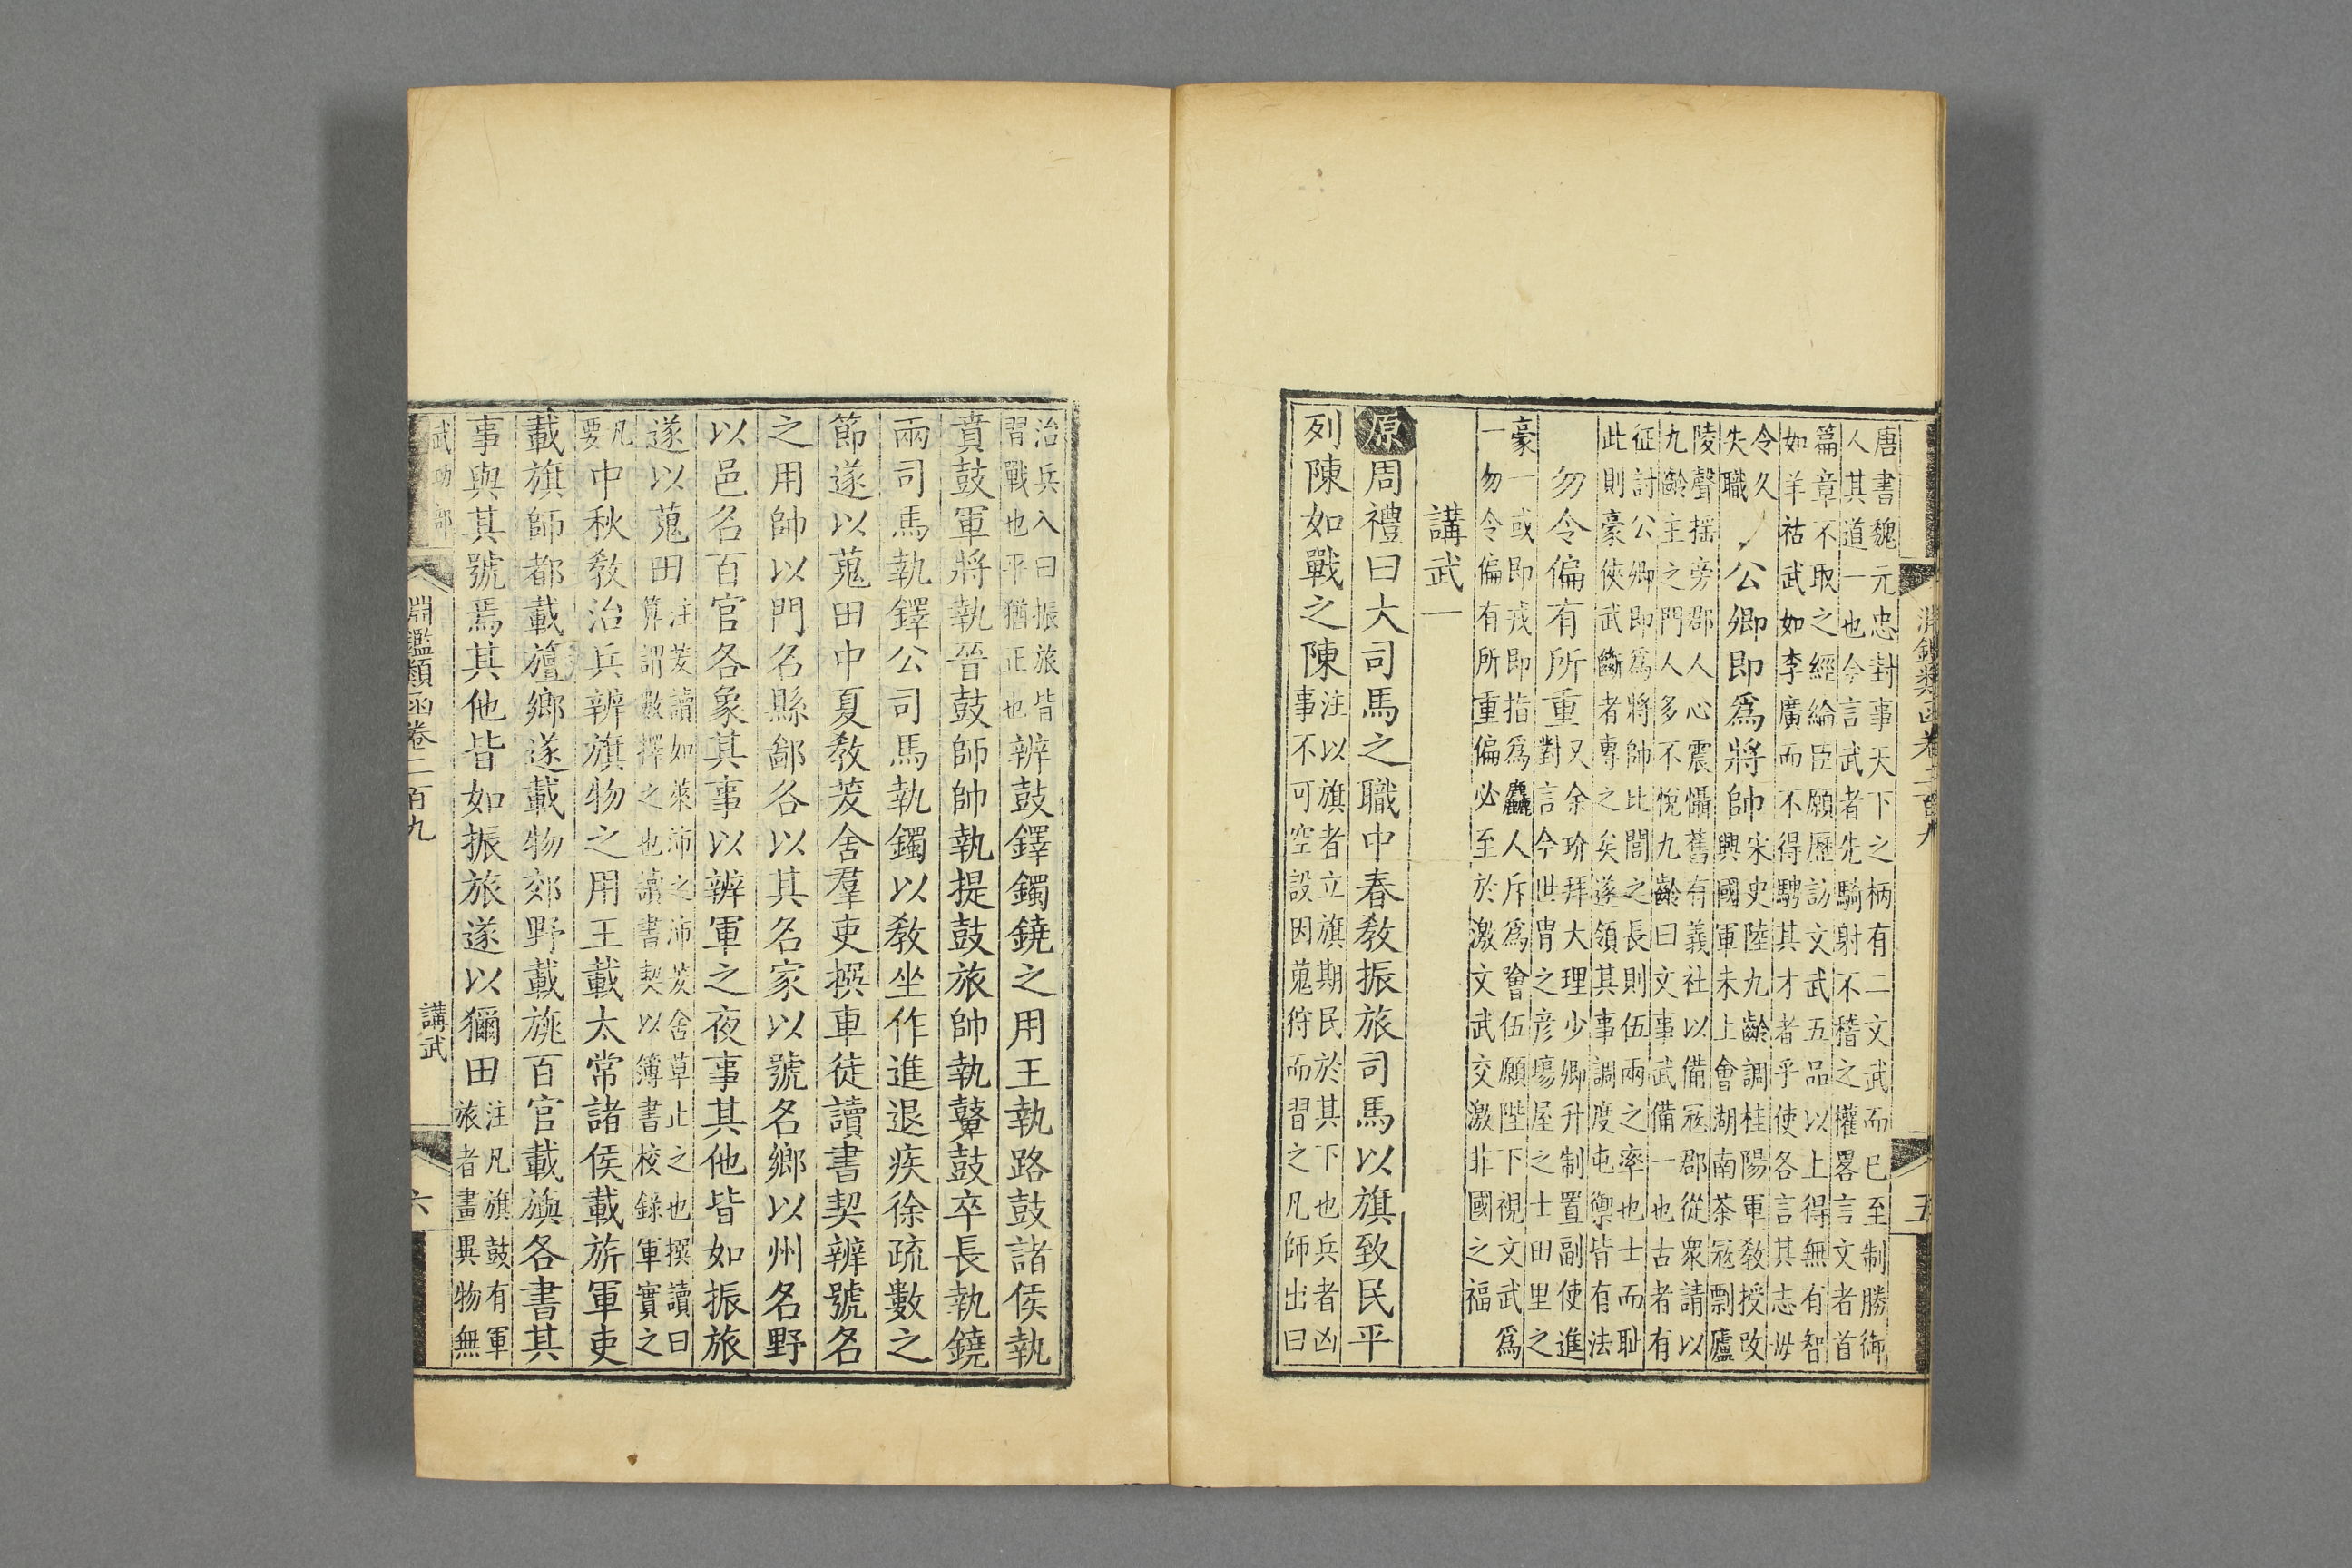 淵鑑類函卷二百九
五
唐書魏元忠封事天下之柄有二文武而已至制勝御
人其道一也今言武者先騎射不稽之權畧言文者首
篇章不取之經綸臣願歷訪文武五品以上得無有智
如羊祜武如李廣而不得騁其才者乎使各言其志毋
令久
失職
公卿即爲將帥
宋史陸九齡調桂陽軍敎授改
興國軍未上會湖南茶寇剽廬
陵聲揺旁郡人心震懾舊有義社以備寇郡從衆請以
九齡主之門人多不悅九齡曰文事武備一也古者有
征討公卿即爲將帥比閭之長則伍兩之率也士而耻
此則豪俠武斷者專之矣遂領其事調度屯禦皆有法
勿令偏有所重
又余玠拜大理少卿升制置副使進
對言今世胄之彥塲屋之士田里之
豪一或即戎即指爲麤人斥爲噲伍願陛下視文武爲
一勿令偏有所重偏必至於激文武交激非國之福
講武一
原周禮曰大司馬之職中春敎振旅司馬以旗致民平
列陳如戰之陳
注以旗者立旗期民於其下也兵者凶
事不可空設因蒐狩而習之凡師出曰
治兵入曰振旅皆
習戰也平猶正也
辨鼓鐸鐲鐃之用王執路鼓諸侯執
賁鼓軍將執晉鼓師帥執提鼓旅帥執鼙鼓卒長執鐃
兩司馬執鐸公司馬執鐲以敎坐作進退疾徐疏數之
節遂以蒐田中夏敎茇舍羣吏撰車徒讀書契辨號名
之用帥以門名縣鄙各以其名家以號名鄉以州名野
以邑名百官各象其事以辨軍之夜事其他皆如振旅
遂以蒐田
注茇讀如萊沛之沛茇舍草止之也撰讀曰
算謂數擇之也讀書契以簿書校錄軍實之
凡
要
中秋敎治兵辨旗物之用王載太常諸侯載旂軍吏
載旗師都載旜鄉遂載物郊野載旐百官載旟各書其
事與其號焉其他皆如振旅遂以獮田
注凡旗鼓有軍
旅者畫異物無
武功部
淵鑑類函卷二百九
講武
六